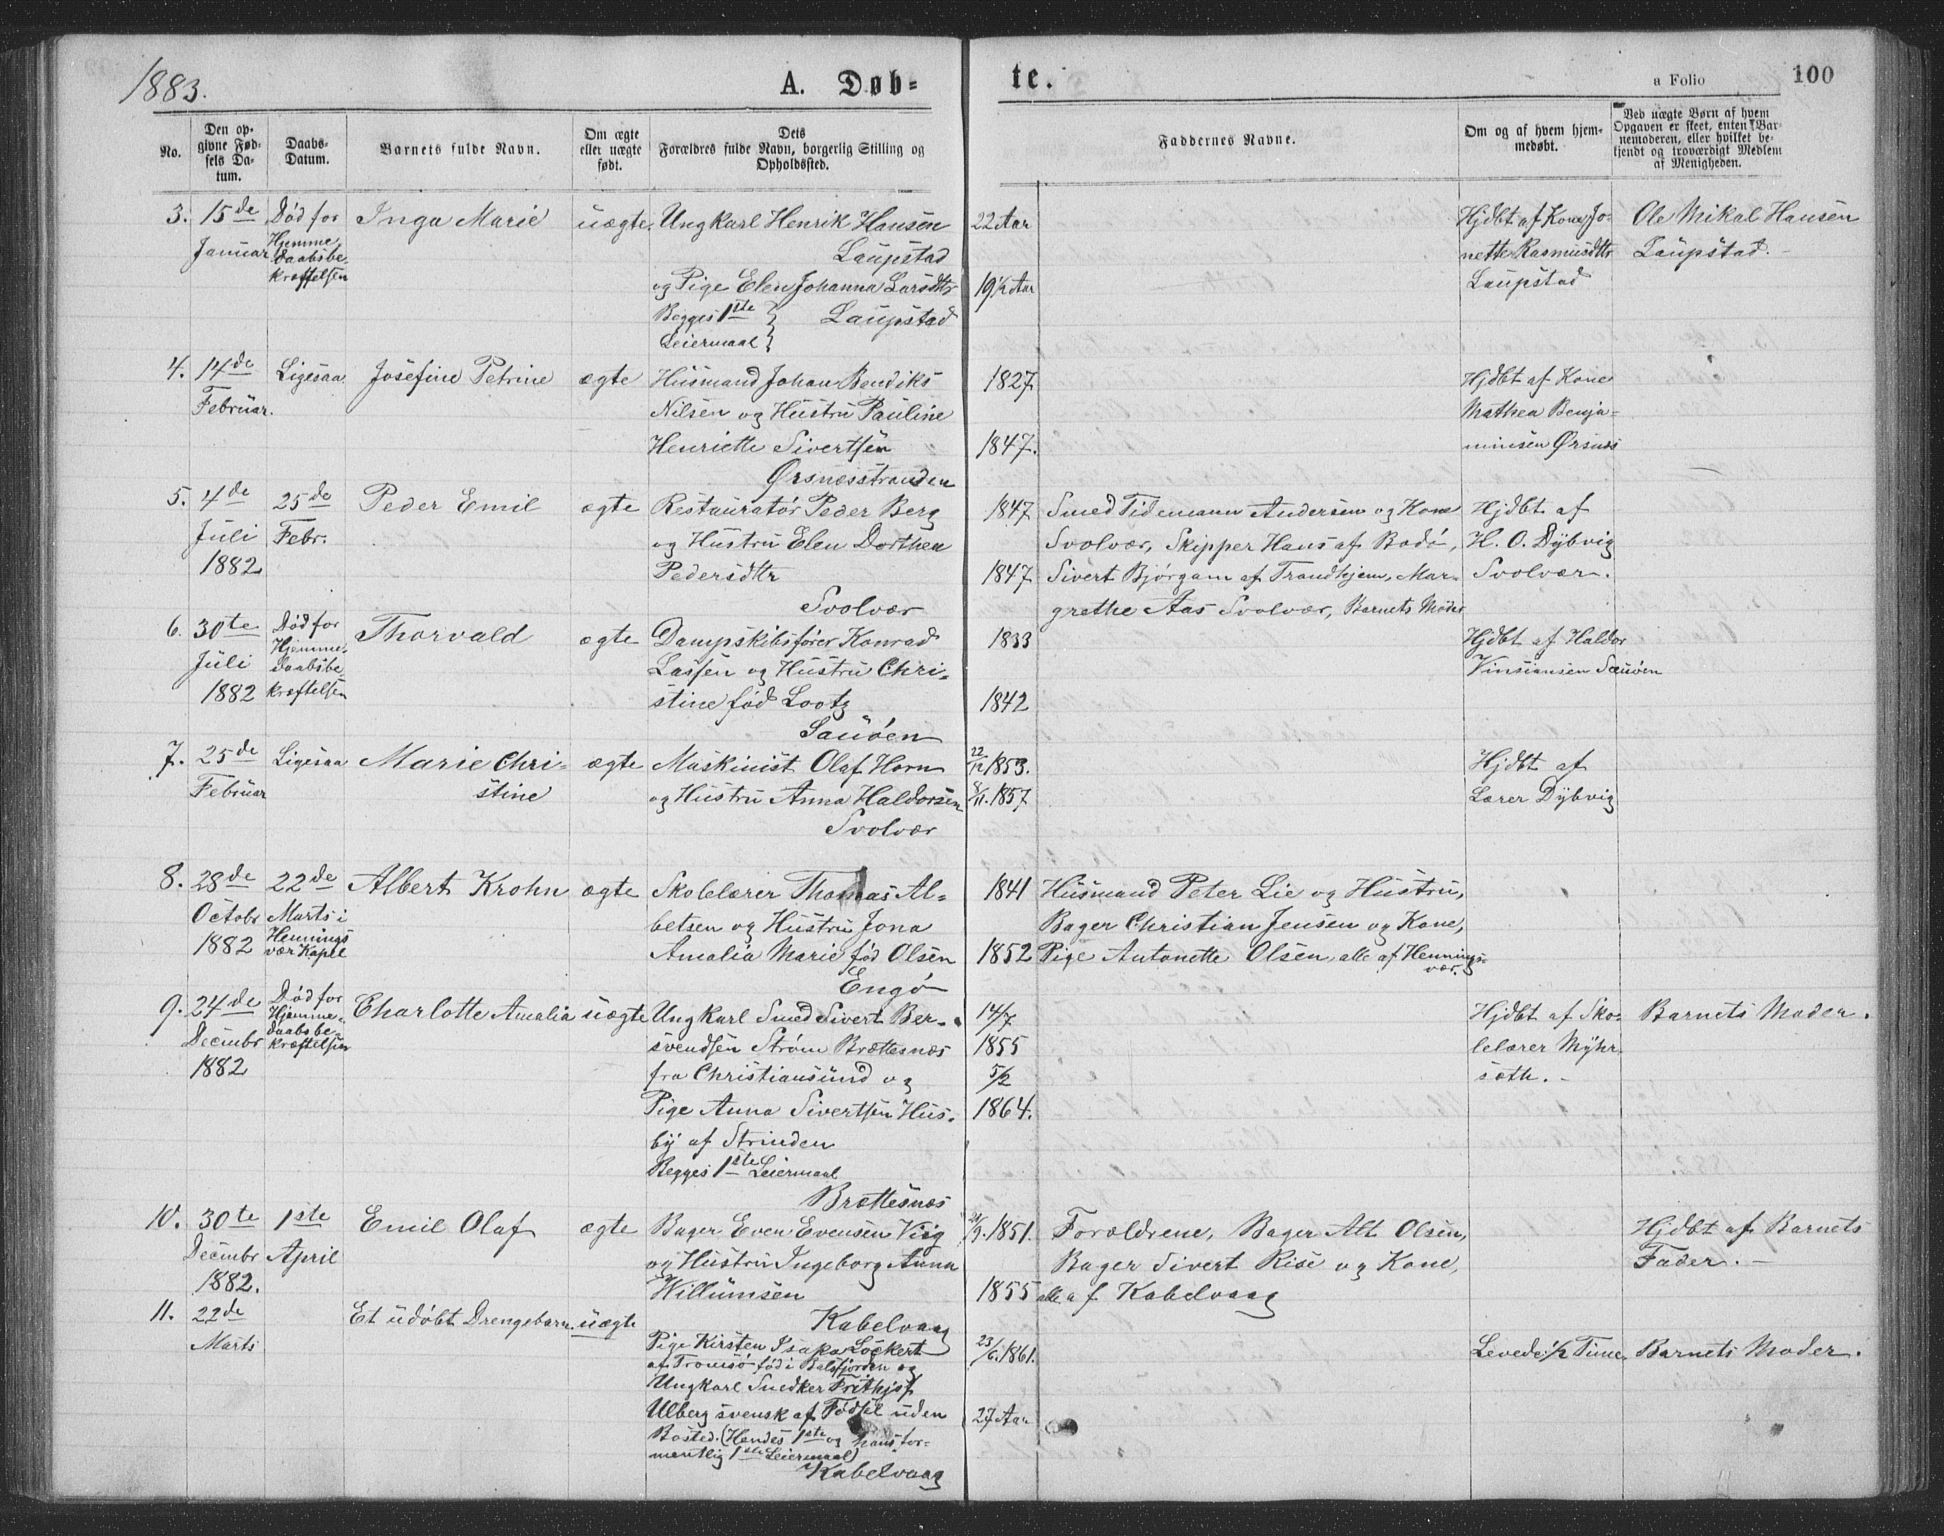 1883.
A. Døb-
te.
a Folio
100
No.
Den op-
givne Fød-
sels Da-
tum.
Daabs-
Datum.
Barnets fulde Navn.
Om ægte
eller uægte
født.
Dets
Forældres fulde Navn, borgerlig Stilling og
Opholdssted.
Faddernes Navne.
Om og af hvem hjem-
medøbt.
Ved uægte Børn af hvem
Opgaven er skeet, enten Bar-
nemoderen, eller hvilket be-
kjendt og troværdigt Medlem
af Menigheden.
3.
15de
Januar
Død for
Hjemme-
daabsbe-
kræftelsen
Inga Marie
uægte
Ungkarl Henrik Hansen
Laupstad
og Pige Elen Johanna Larsdtr
Begges 1ste
Leiermaal
Laupstad
22 Aar
19 1/2 Aar
Hjdbt af Kone Jo-
nette Rasmusdtr
Laupstad
Ole Mikal Hansen
Laupstad.
4.
14de
Februar.
Ligesaa
Josefine Petrine
ægte
Husmand Johan Bendiks
Nilsen og Hustru Pauline
Henriette Sivertsen
Ørsnæsstranden
1827
1847.
Hjdbt af Kone
Mathea Benja-
minsen Ørsnæs
5.
4de
Juli
1882
25de
Febr.
Peder Emil
ægte
Restauratør Peder Berg
og Hustru Elen Dorthea
Pedersdtr
Svolvær
1847
1847
Smed Tidemann Andersen og Kone
Svolvær, Skipper Hans af Bodö,
Sivert Bjørgam af Trondhjem, Mar-
grethe Aas Svolvær, Barnets Moder
Hjdbt af
H. O. Dybvig
Svolvær.
6.
30te
Juli
1882
Død for
Hjemme-
daabsbe-
kræftelsen
Thorvald
ægte
Dampskibsfører Konrad
Lassen og Hustru Chri-
stine fød Lootz
Sauöen
1833
1842
Hjdbt af Haldor
Vinsiansen Sauöen
7.
25de
Februar
Ligesaa
Marie Chri-
stine
ægte
Maskinist Olaf Horn
og Hustru Anna Haldorsen
Svolvær
22/12 1853.
8/11. 1857
Hjdbt af
Lærer Dybvig
8.
28de
Octobr
1882
22de
Marts i
Hennings
vær Kapel
Albert Krohn
ægte
Skolelærer Thomas Al-
betsen og Hustru Jona
Amalia Marie fød Olsen
Engö
1841
1852
Husmand Peter Lie og Hustru,
Bager Christian Jensen og Kone,
Pige Antonette Olsen, alle af Hennings-
vær.
9.
24de
Decimbr
1882
Død for
Hjemme-
daabsbe-
kræftelsen
Charlotte Amalia
uægte
Ungkarl Smed Sivert Ber-
svendsen Strøm Brættesnæs
fra Christiansund og
Pige Anna Sivertsen Hus-
by af Strinden
Begges 1ste Leiermaal
Brættesnæs
14/7
1855
5/2
1864.
Hjdbt af Sko-
lelærer Myhr-
sæth.
Barnets Moder.
10.
30te
Decimbr
1882.
1ste
April
Emil Olaf
ægte
Bager Even Evensen Viig
og Hustru Ingeborg Anna
Willumsen
Kabelvaag
1851.
1855
Forældrene, Bager Alt Olsen,
Bager Sivert Rise og Kone,
alle af Kabelvaag
Hjdbt af Barnets
Fader.
11.
22de
Marts
Et udøbt Drengebarn
uægte
Pige Kirsten Isaka Lockert
af Tromsö född i Balsfjorden og
Ungkarl Snedker Frithjof
Ulberg svensk af Fødsel uden
Bosted. (Hendes 1ste og hans for-
mentlig 1ste Leiermaal)
Kabelvaag
23/6. 1861.
27 Aar
Levede 1/2 Time
Barnets Moder.